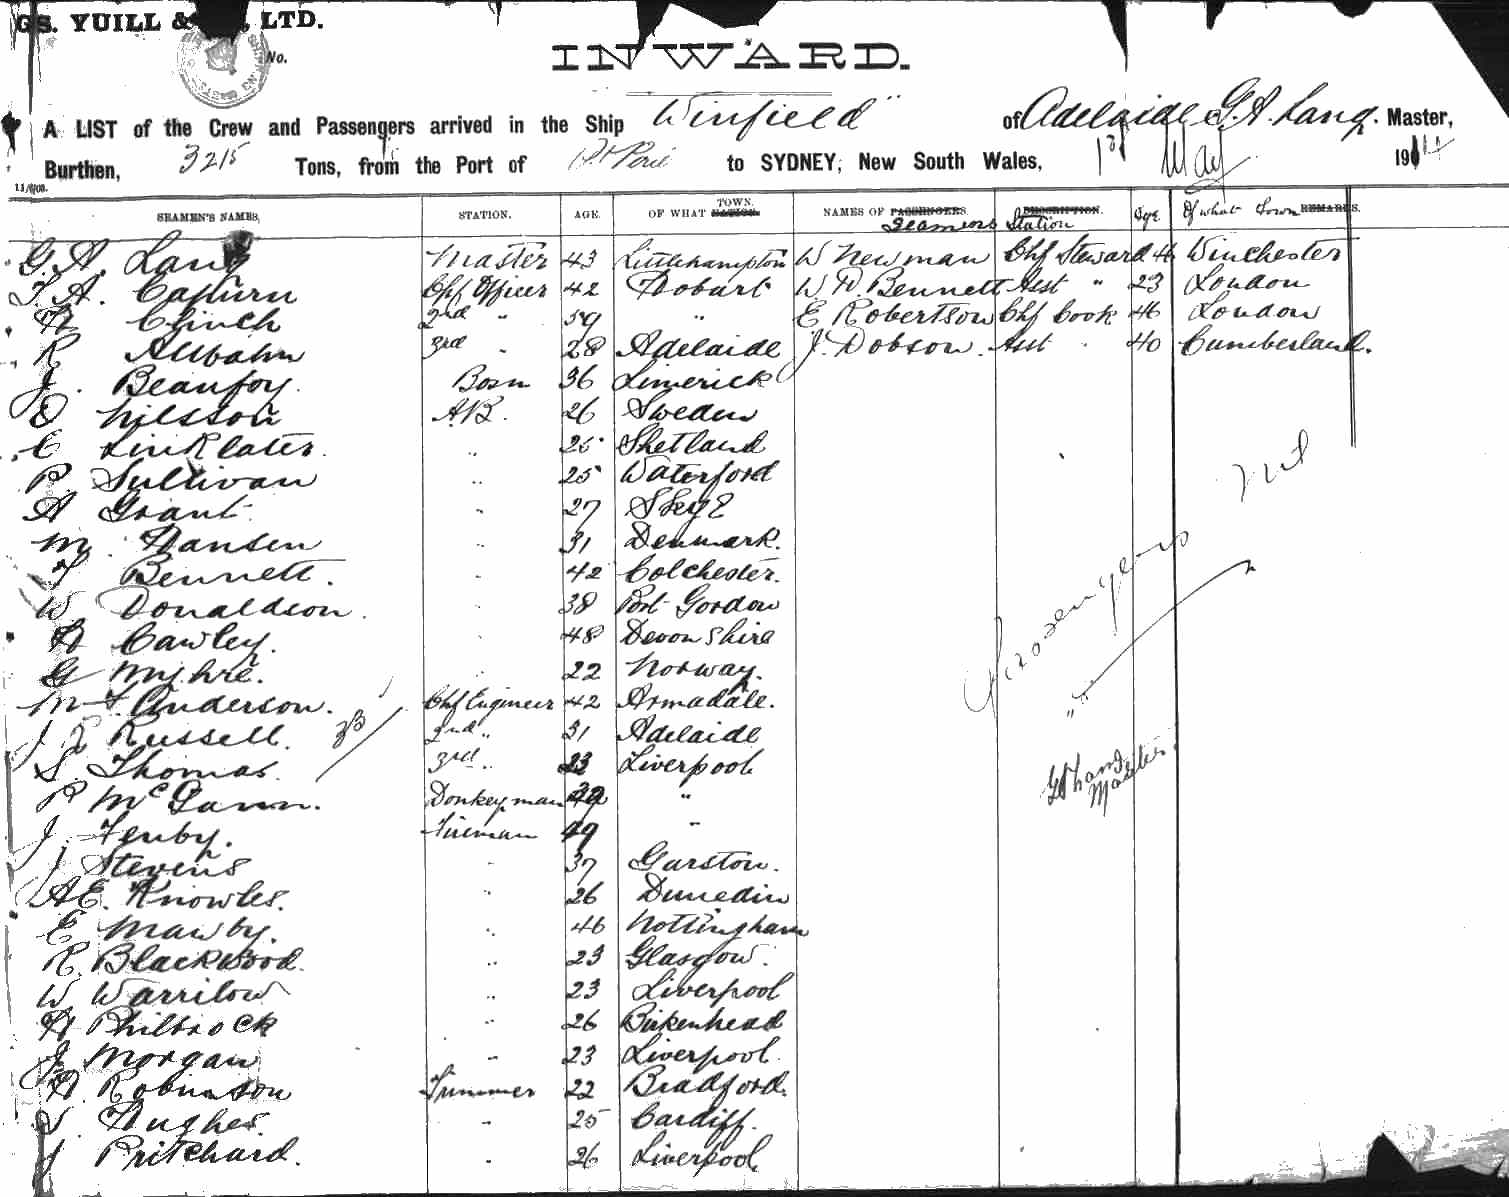 G.S. YUILL & LTD.
No.
INWARD.
A LIST of the Crew and Passengers arrived in the Ship "Winfield" of Adelaide G.A. Lang. Master,
Burthen, 3215 Tons, from the Port of Pt Pirie to SYDNEY, New South Wales, 1st May 1914
11/6/08.
SEAMEN'S NAMES, STATION. AGE. OF WHAT TOWN. NATION. NAMES OF PASSENGERS. Seamens DESCRIPTION. Station Age Of what Town REMARKS.
G. A. Lang Master 43 Littlehampton W Newman Chf Steward Winchester
Chf Officer 42 Hobart W. D. Bennett Asst " 23 London
H Clinch 2nd " 59 " E Robertson Chf Cook 46 London
R Allbahn 3rd " 28 Adelaide J. Dobson. Asst " 40 Cumberland.
J. Beaufoy. Bosn 36 Limerick
O Nilsson A.B. 26 Sweden
C Linklater. " 25 Shetland
P Sullivan " 25 Waterford
A Grant. " 27 Skye
M. Hansen " 31 Denmark.
T Bennett. " 42 Colchester.
W Donaldson. " 38 Port Gordon
H Cawley. " 48 Devonshire
G Myhre. " 22 Norway.
M Anderson. Chf Engineer 42 Armadale.
J Russell. 2nd " 31 Adelaide
S. Thomas. 3rd " 23 Liverpool
P McGann. Donkeyman "
J. Fenby. Fireman 49 "
J Stevens " 37 Garston.
A.E. Knowles. " 26 Dunedin
E Mawby. " 46 Nottingham
R. Blackwood. " 23 Glasgow.
W Warrilow " 23 Liverpool
H Philbrock " 26 Birkenhead
J Morgan " 23 Liverpool.
H Robinson Trimmer 22 Bradford.
S. Hughes. " 25 Cardiff.
J Pritchard. " 26 Liverpool
33
Passengers Nil
G A Lang
Master.